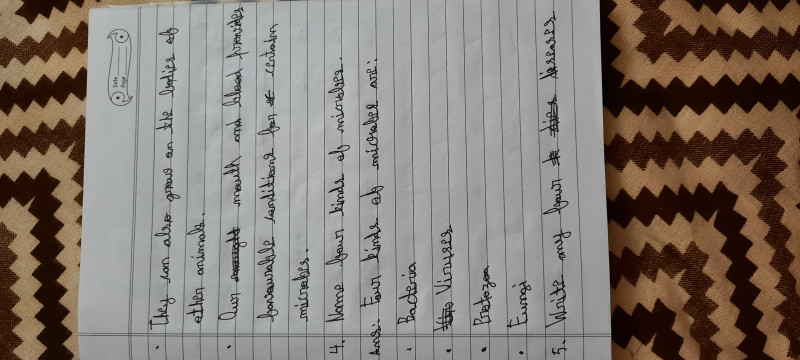 Date
Page
• They can also grow on the bodies of
other animals.
• Our mouth and blood provides
favourable conditions for certain
microbes.
4. Name four kinds of microbes.
Ans: Four kinds of microbes are:
• Bacteria
• Viruses
• Protozoa
• Fungi
5. Write any four diseases